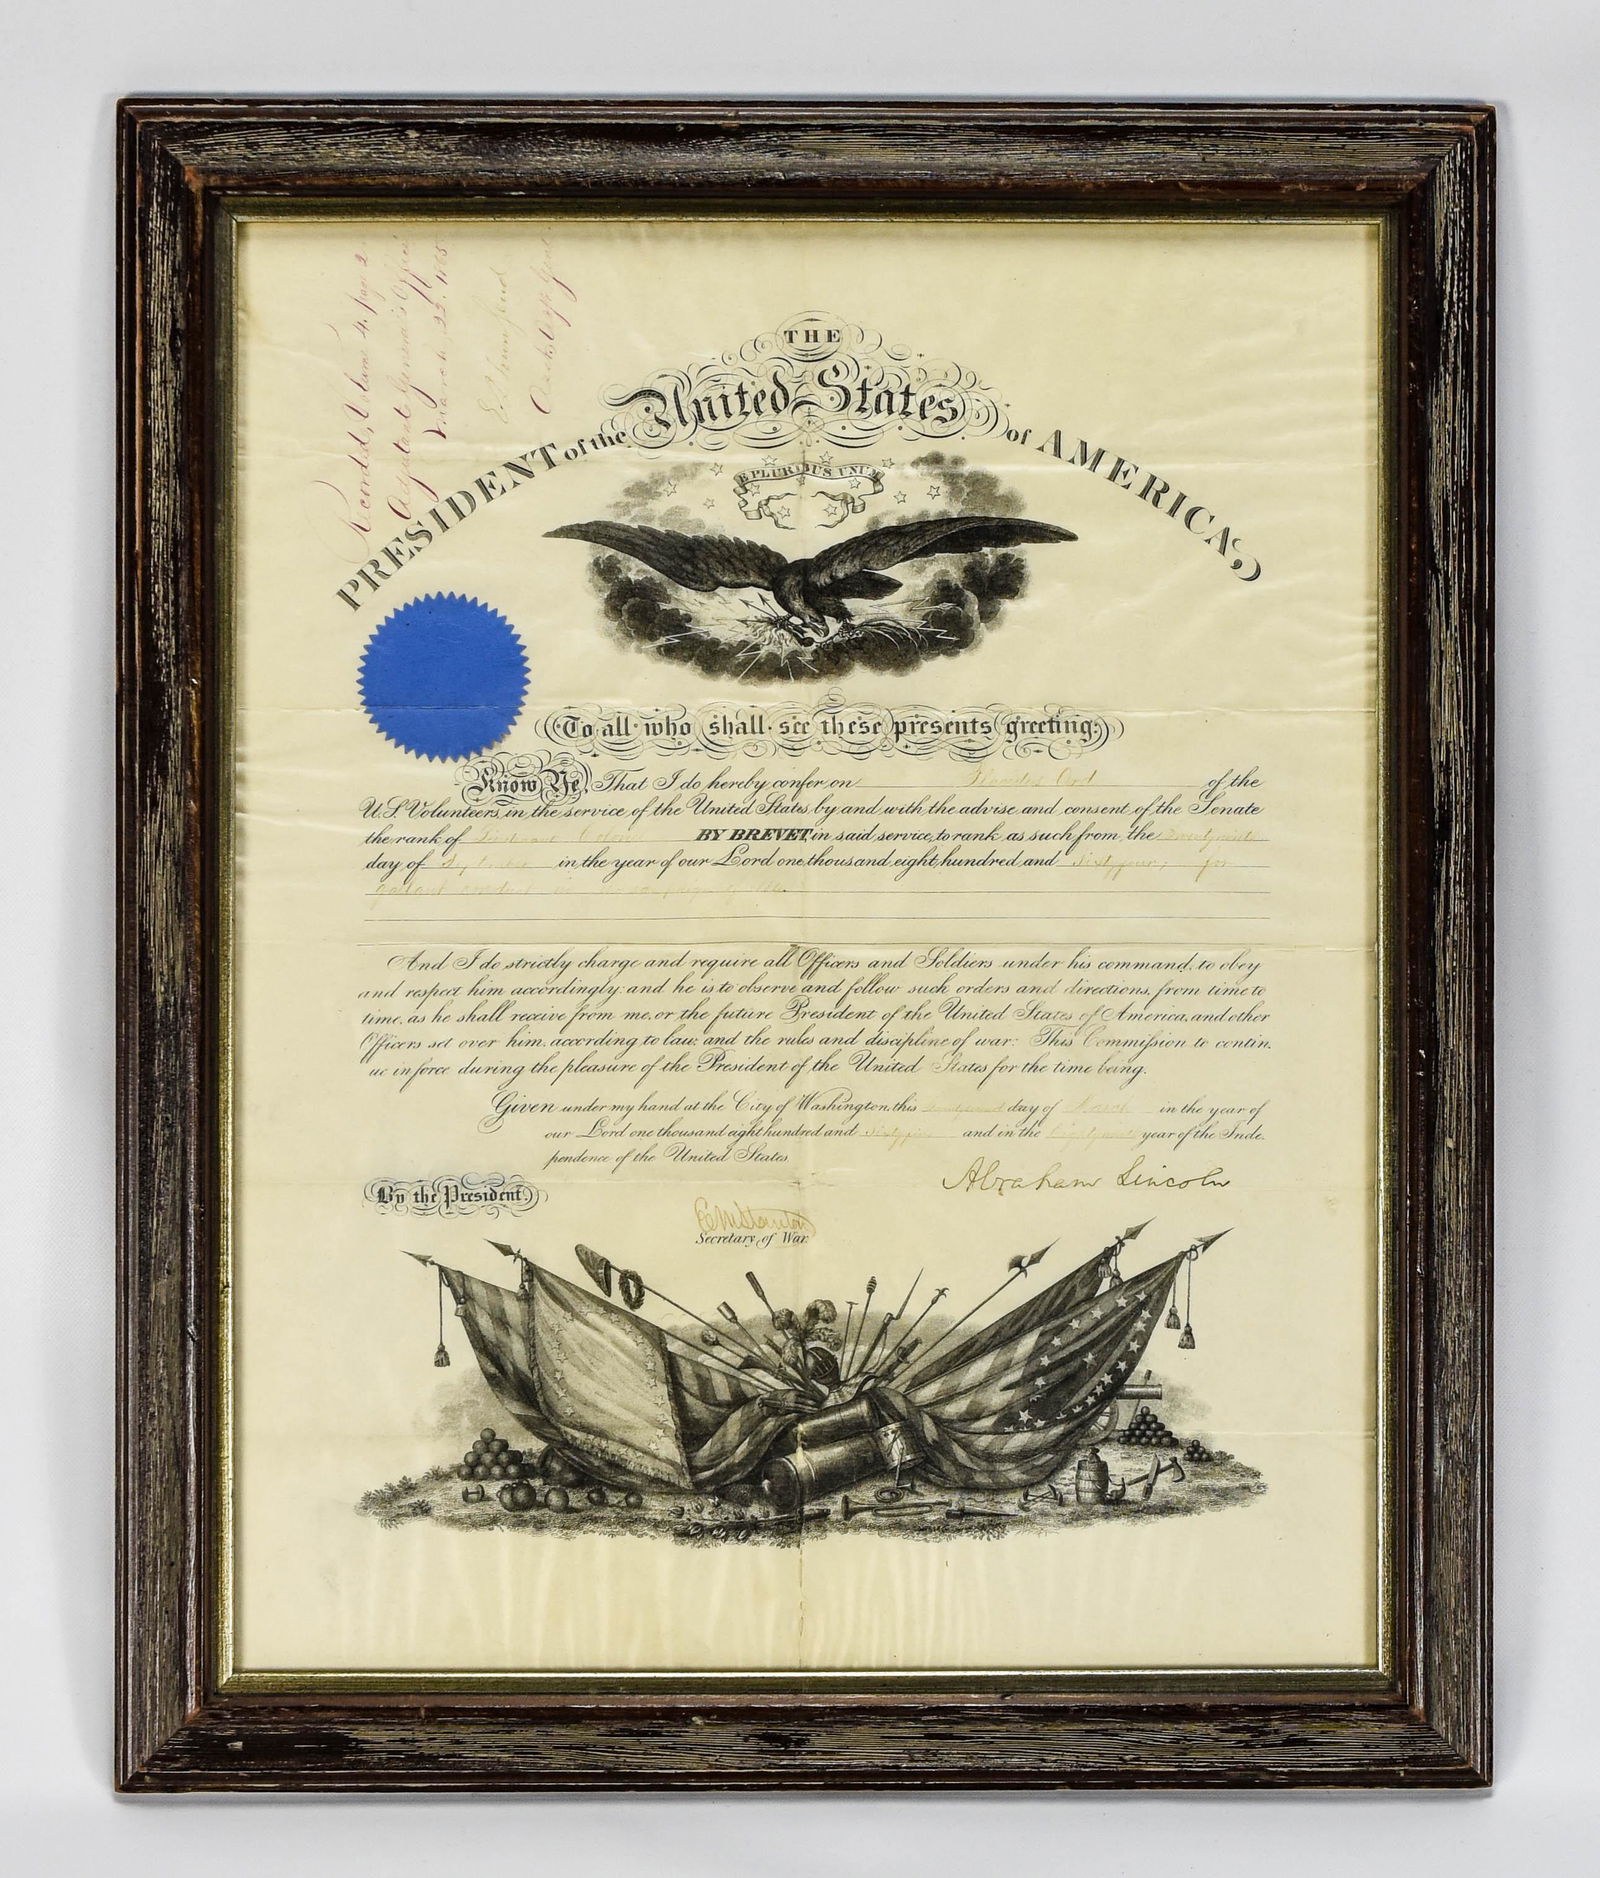 Recorded, Volume 4, page 2
Adjutant General's Office
March 22, 1865
E D Townsend
Asst Adjt Genl
THE
PRESIDENT of the United States of AMERICA,
E PLURIBUS UNUM
To all who shall see these presents greeting:
Know Ye, That I do hereby confer on Ord of the
U.S. Volunteers, in the service of the United States, by and with the advise and consent of the Senate
the rank of Lieutenant Colonel BY BREVET, in said service, to rank as such from the
day of September in the year of our Lord one thousand eight hundred and sixty four, for
gallant conduct in
And I do strictly charge and require all Officers and Soldiers under his command, to obey
and respect him accordingly: and he is to observe and follow such orders and directions, from time to
time, as he shall receive from me, or the future President of the United States of America, and other
Officers set over him, according to law, and the rules and discipline of war: This Commission to contin.
ue in force during the pleasure of the President of the United States for the time being.
Given under my hand at the City of Washington, this day of March in the year of
our Lord one thousand eight hundred and sixty five and in the eighty ninth year of the Inde.
pendence of the United States
Abraham Lincoln
By the President.
Edwin M Stanton
Secretary of War.